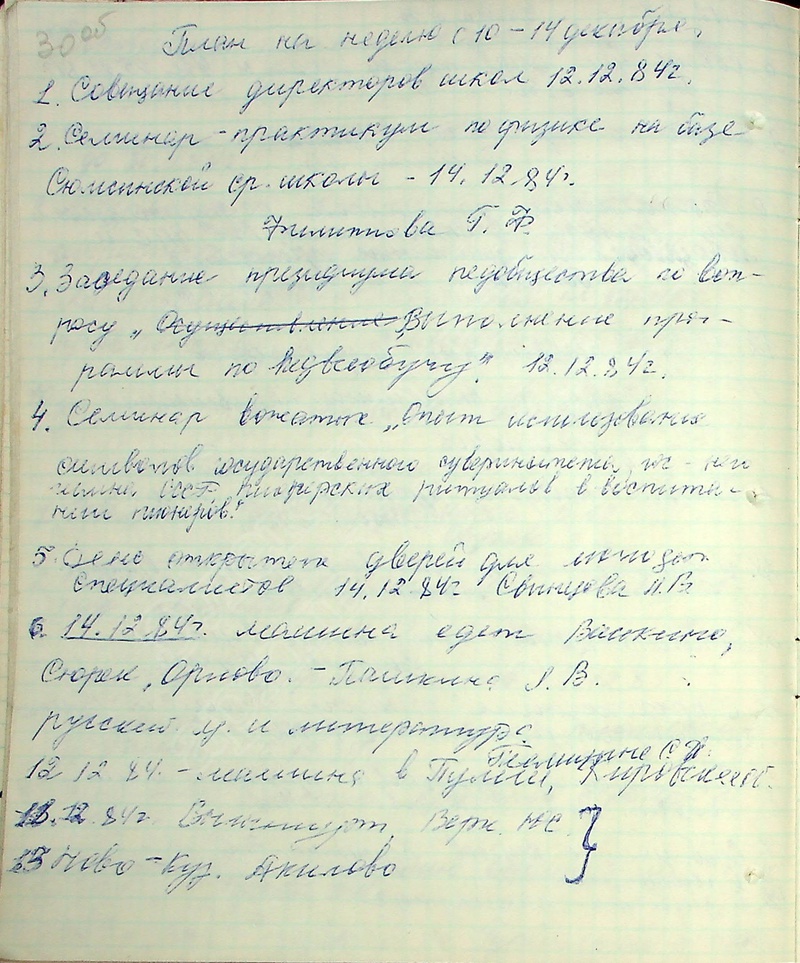 30 об
План на неделю с 10 – 14 декабря.
1. Совещание директоров школ 12.12.84г.
2. Семинар – практикум по физике на базе
Сюмсинской ср. школы – 14.12.84г.
Филиппова Г. Ф.
3. Заседание президиума педобщества по воп-
росу „Осуществление Выполнение прог-
раммы по педвсеобучу". 12.12.84г.
4. Семинар вожатых „Опыт использования
символов государственного суверинитета,
гимна СССР пионерских ритуалов в воспита-
нии пионеров."
5. День открытых дверей для молодых
специалистов 14.12.84г Свинцова В.
6. 14.12.84г. машина едет Вашкино,
Сюрек, Орлово. – Пашкина В.
русский я. и литература.
12 12 84. – машина в Кировская об.
13.12.84г. Верх. Юс. }
13 Ново – Куз. Акилово